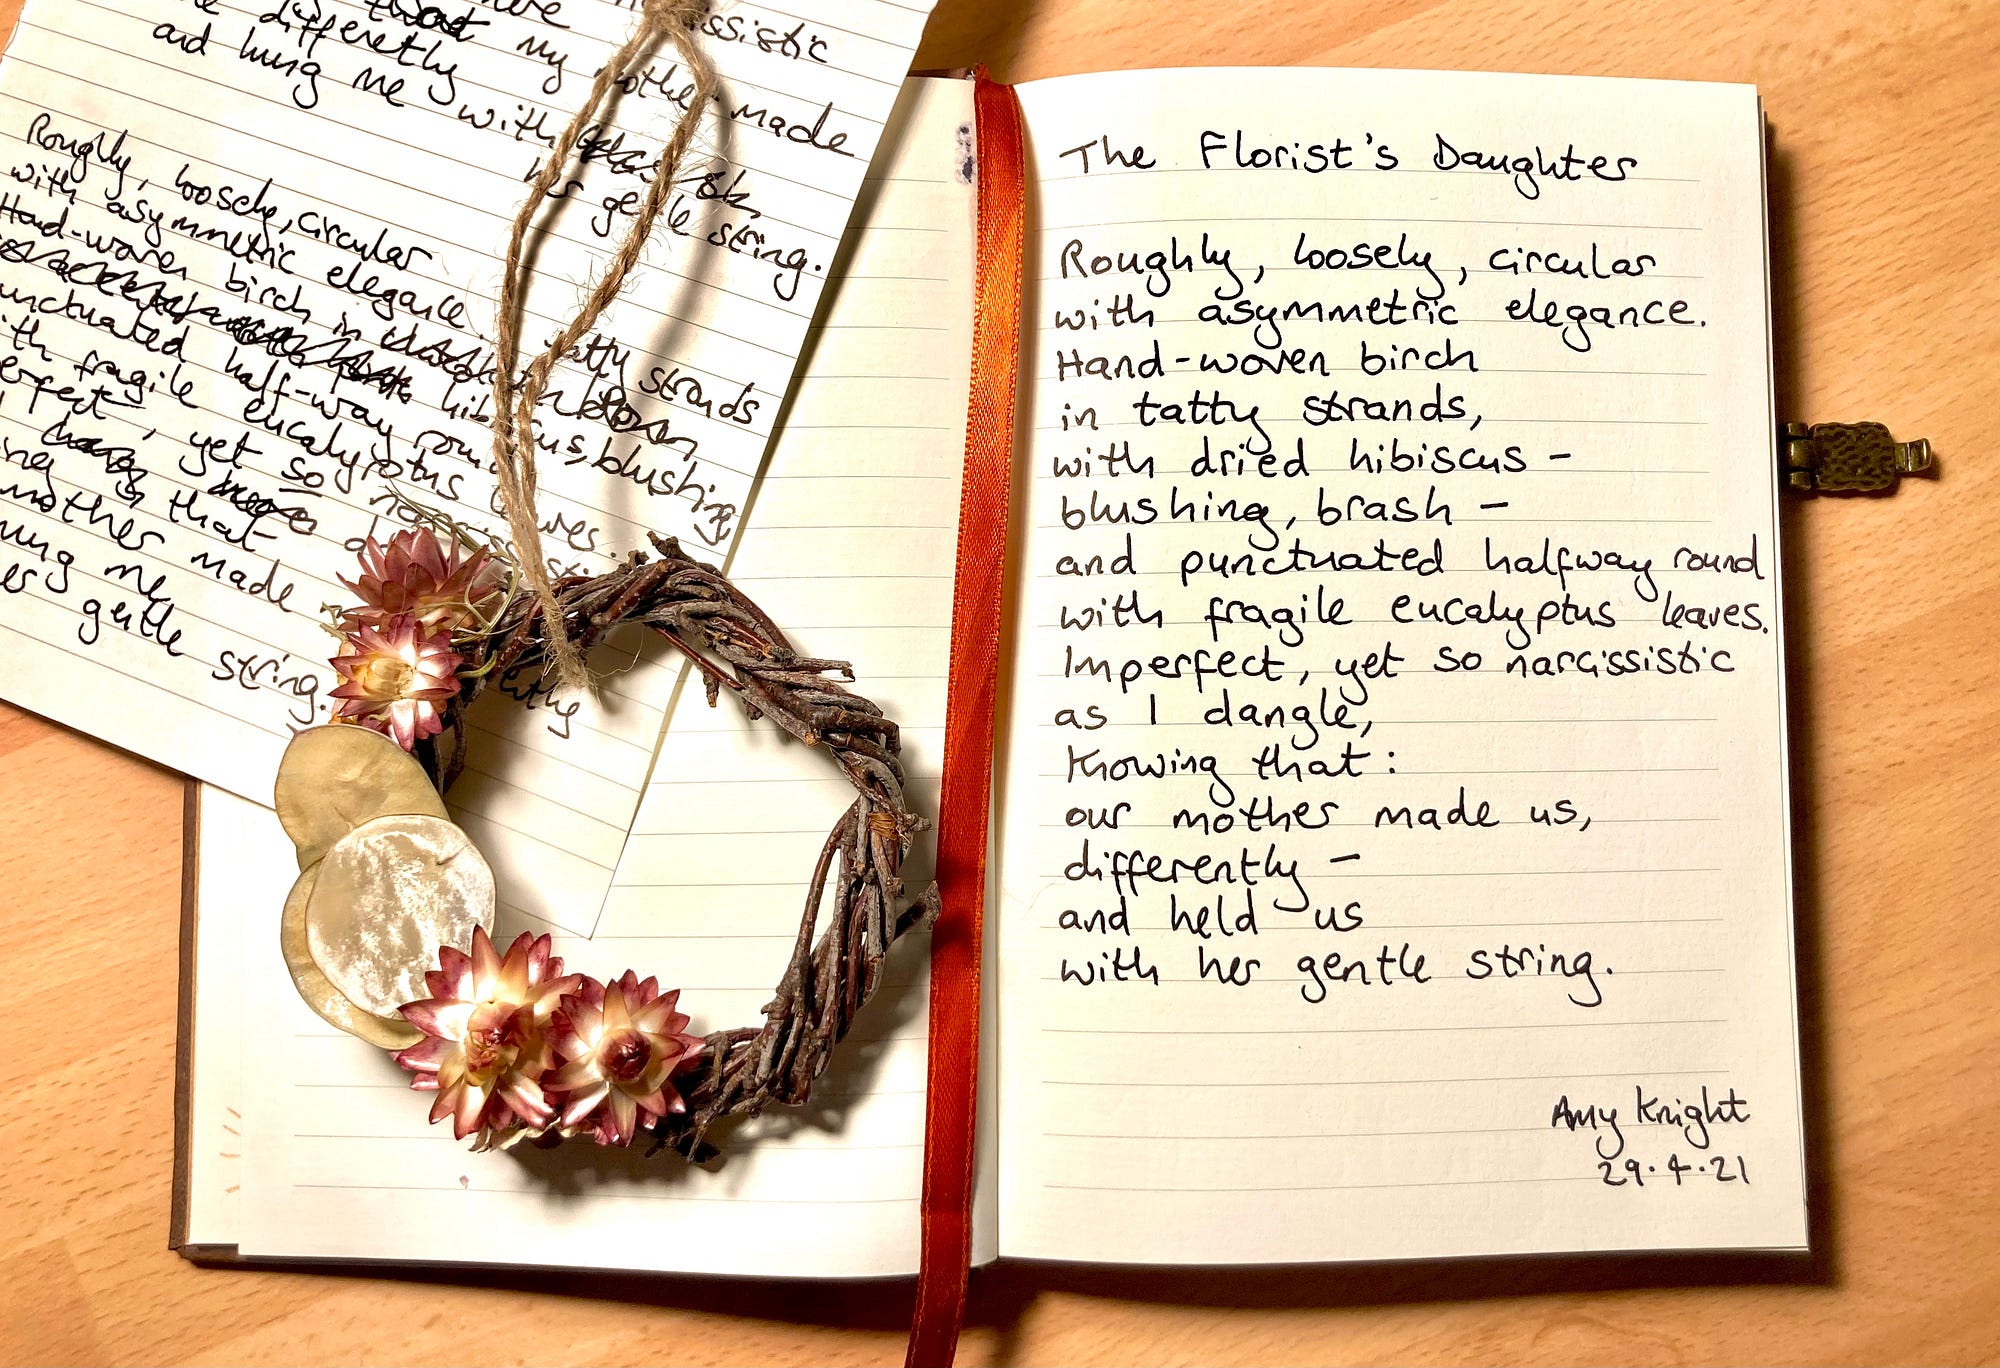 ssistic
differently my mother made
and hung me with
string.
Roughly, loosely, circular
with asymmetric elegance.
Hand-woven birch in tatty strands
hibiscus, blushing,
punctuated half-way round
with fragile eucalyptus leaves.
perfect, yet so
that
mother made
hung me
her gentle string.
The Florist's Daughter
Roughly, loosely, circular
with asymmetric elegance.
Hand-woven birch
in tatty strands,
with dried hibiscus -
blushing, brash -
and punctuated halfway round
with fragile eucalyptus leaves.
Imperfect, yet so narcissistic
as I dangle,
Knowing that:
our mother made us,
differently -
and held us
with her gentle string.
Amy Knight
29.4.21